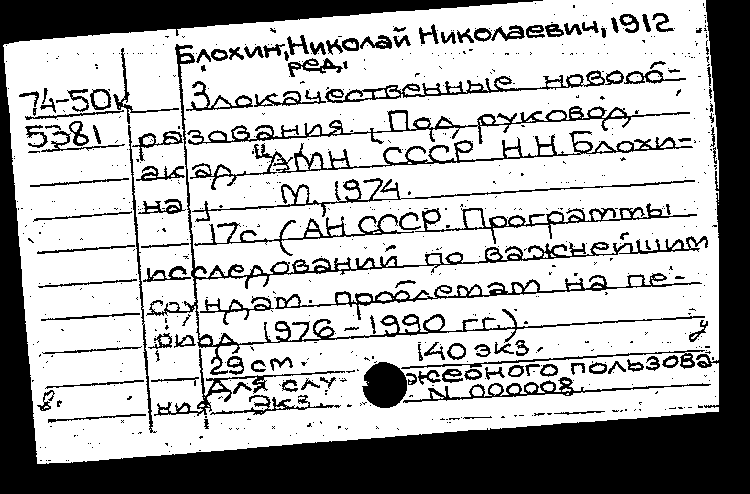 Блохин, Николай Николаевич, 1912
ред.
74-50к Злокачественные новооб-
5381 разования. [Под руковод.
акад. АМН СССР Н.Н. Блохи-
на]. М., 1974.
17с. (АН СССР. Программы
исследований по важнейшим
фундам. проблемам на пе-
риод 1976-1990 гг.).
29 см. 140 экз. у
Для служебного пользова-
8. ния Экз. N 000008.